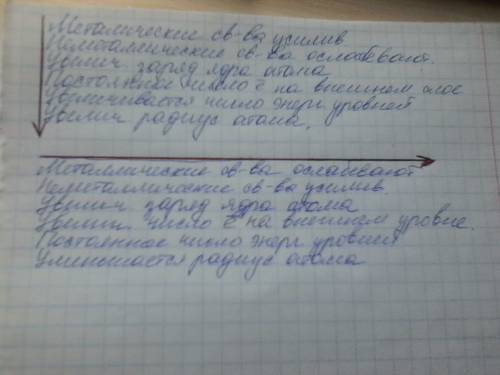 Металические св-ва усилив
Неметаллические св-ва ослабевают.
Увелич заряд ядра атома
Постоянное число ē на внешнем слое
Увеличивается число энерг уровней
Увелич радиус атома.
Металлические св-ва ослабевают
Неметаллические св-ва усилив.
Увелич заряд ядра атома
Увелич число ē на внешнем уровне.
Постоянное число энерг уровней
Уменьшается радиус атома